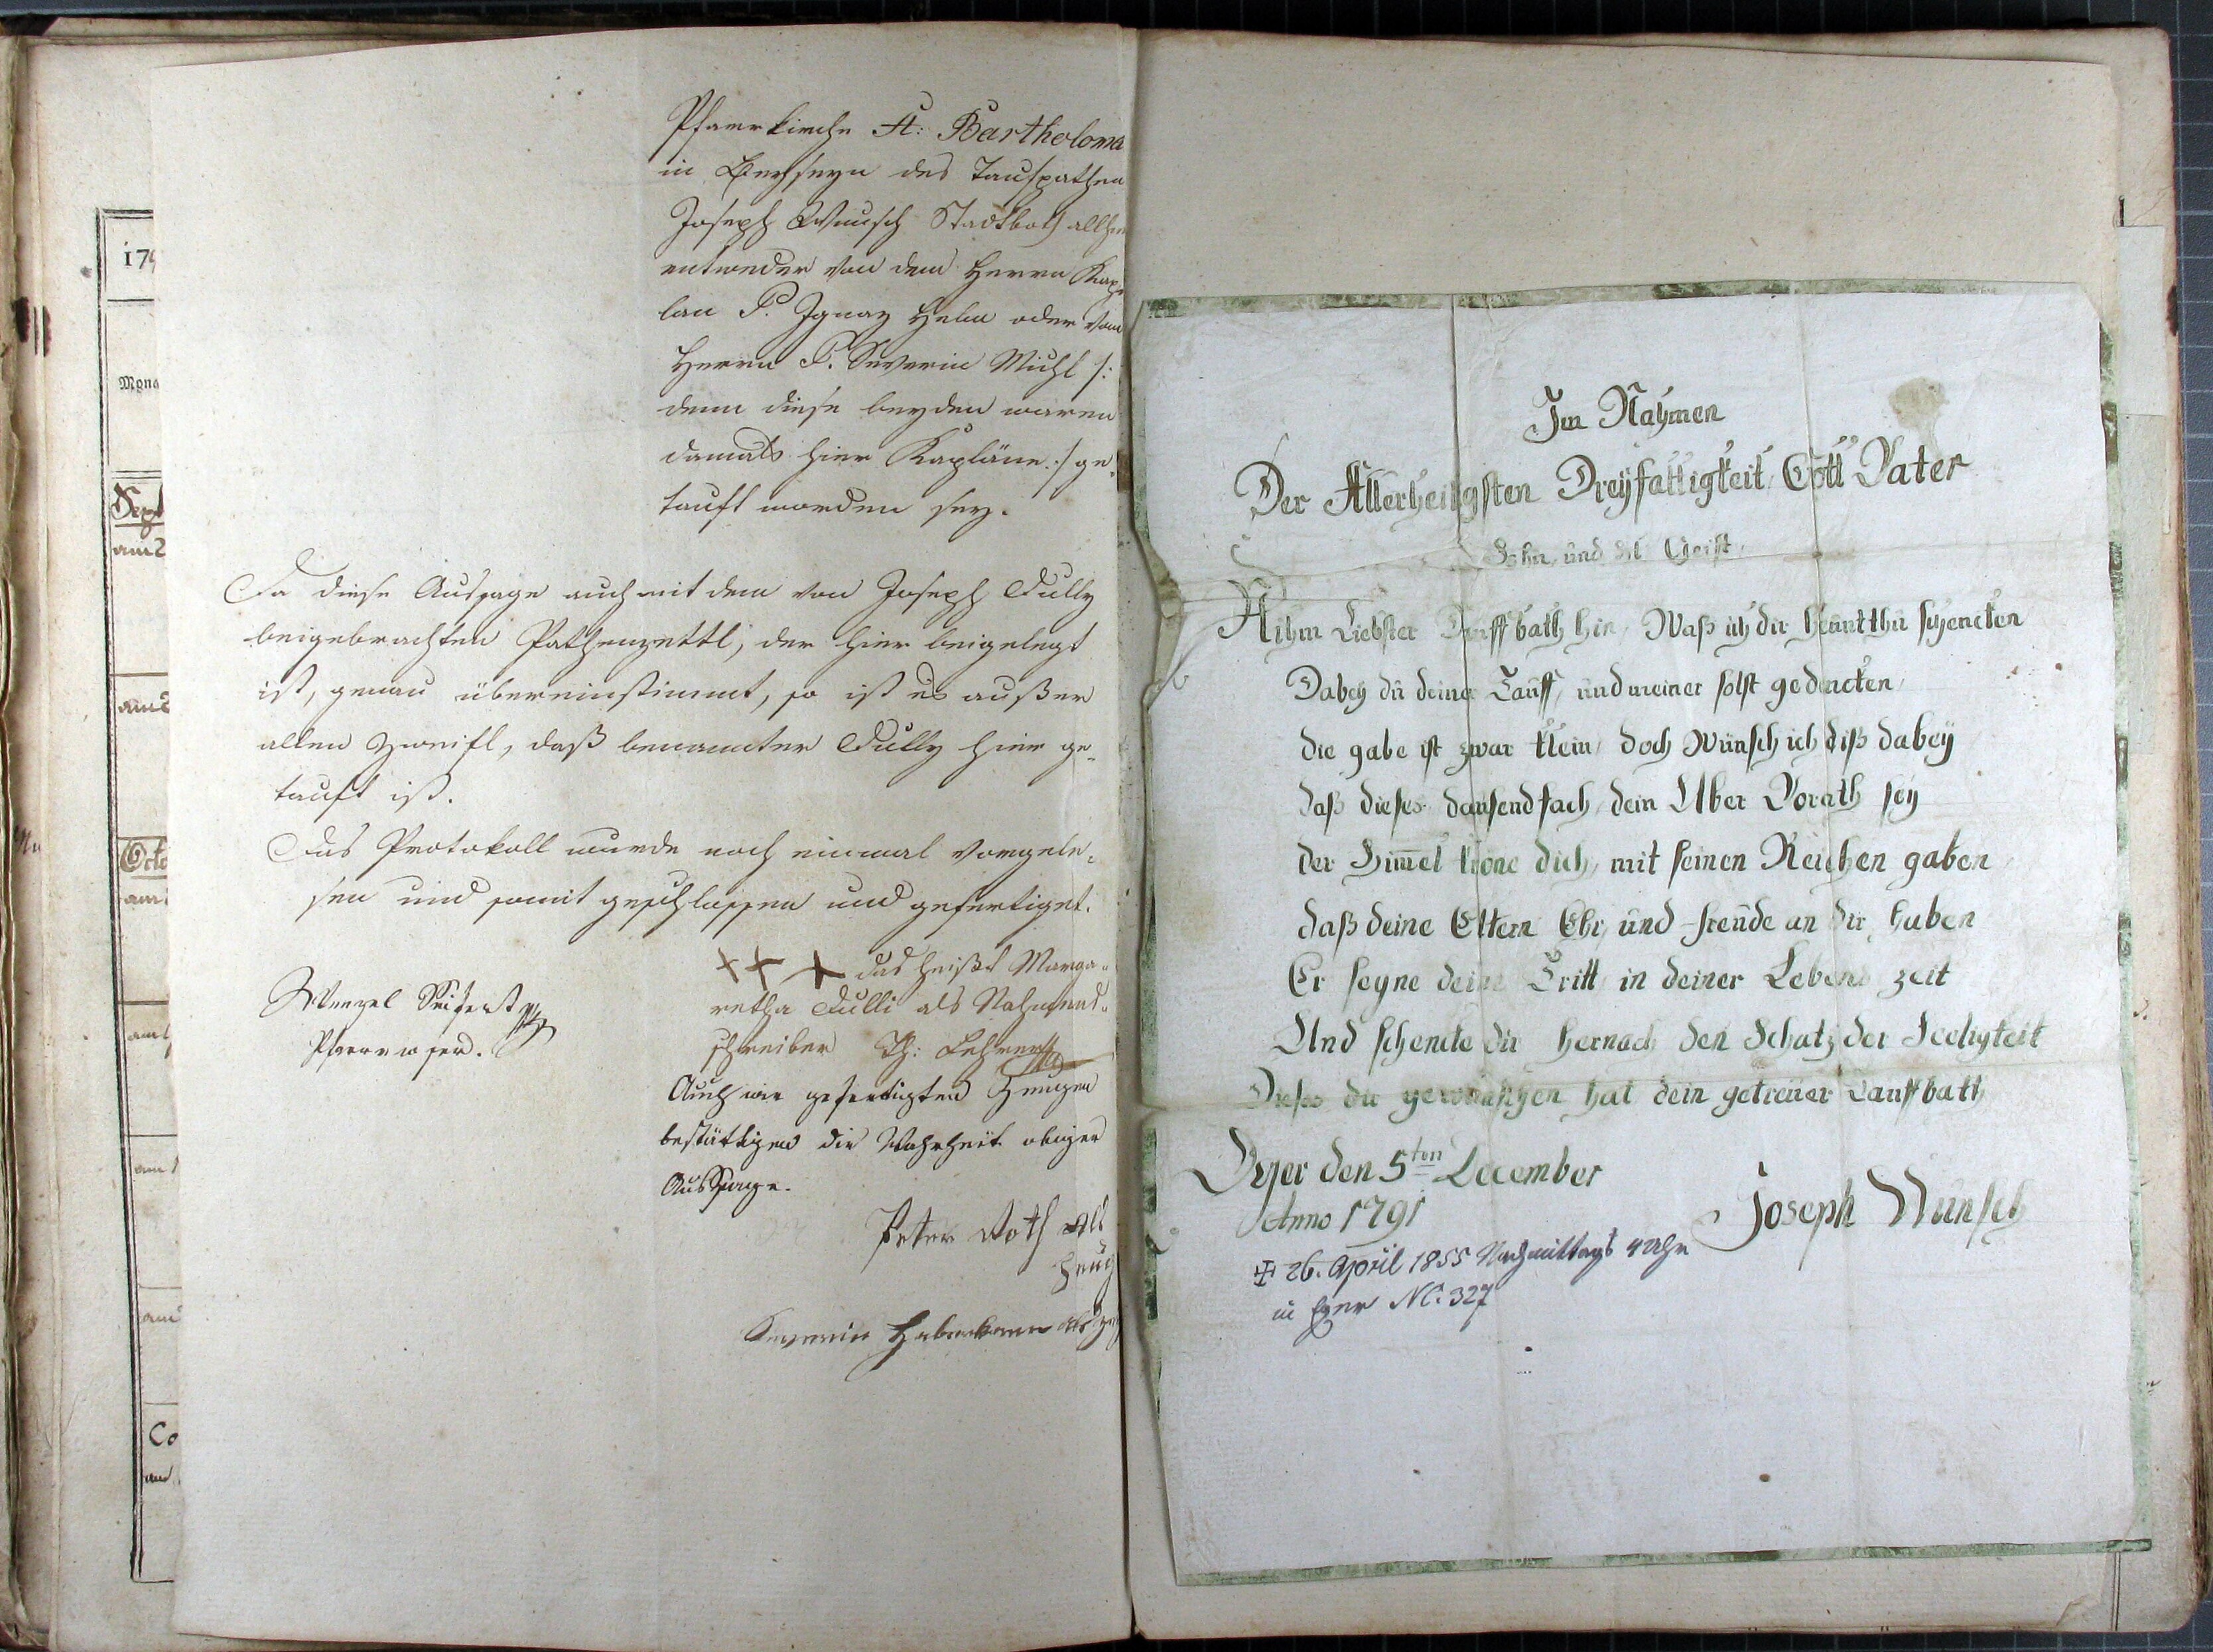 Pfarrkirche St: Bartholomä
in Beyseyn des Taufpathen
Joseph Wunsch Stadtboth allhier
entweder von dem Herrn Kap¬
lan P. Ignaz Helm oder vom
Herrn P. Severin Michl /:
denn diese beyden waren
damals hier Kapläne :/ ge¬
tauft worden sey.
Da diese Aussage auch mit dem von Joseph Dully
beigebrachten Pathenzettl, der hier beigelegt
ist, genau übereinstimmt, so ist es außer
allen Zweifl, daß benannter Dully hier ge¬
tauft ist.
Das Protokoll wurde noch einmal vorgele¬
sen und somit geschlossen und gefertiget.
xx x das heißt Marga¬
retha Dulli als Nahmens¬
schreiber Th: Lehrer
Wenzel Seifert
Pfarrverw.
Auch wir gefertigten Zeugen
bestättigen die Wahrheit obiger
Aussage.
Peter Roth als
Zeug
Severin Haberkorn als Z
179
Mona
Sept
am 2
Octo
Im Nahmen
Der Allerheiligsten Dreyfaltigkeit, Gott Vater
Sohn, und Hl: Geist,
Nihm Liebster Dauffbath hin, Waß ich dir heünt thu schencken
Dabey dü deiner Tauff, und meiner solst gedencken,
die gabe ist zwar klein, doch Wünsch ich diß dabey
daß dieses dausendfach, dein Uber Vorath sey
der Himel kröne dich, mit seinen Reichen gaben
daß deine Eltern Ehr, und freude an dir haben
Er segne deine Tritt in deiner Lebens zeit
Und schencke dir hernach den Schatz der Seeligkeit
Dieses dir gewünschen hat dein getreuer Tauffbath
Eger den 5ten December
Anno 1791
Joseph Wünsch
✠ 26. April 1855 Nachmittags 4 Uhr
in Eger NC. 327